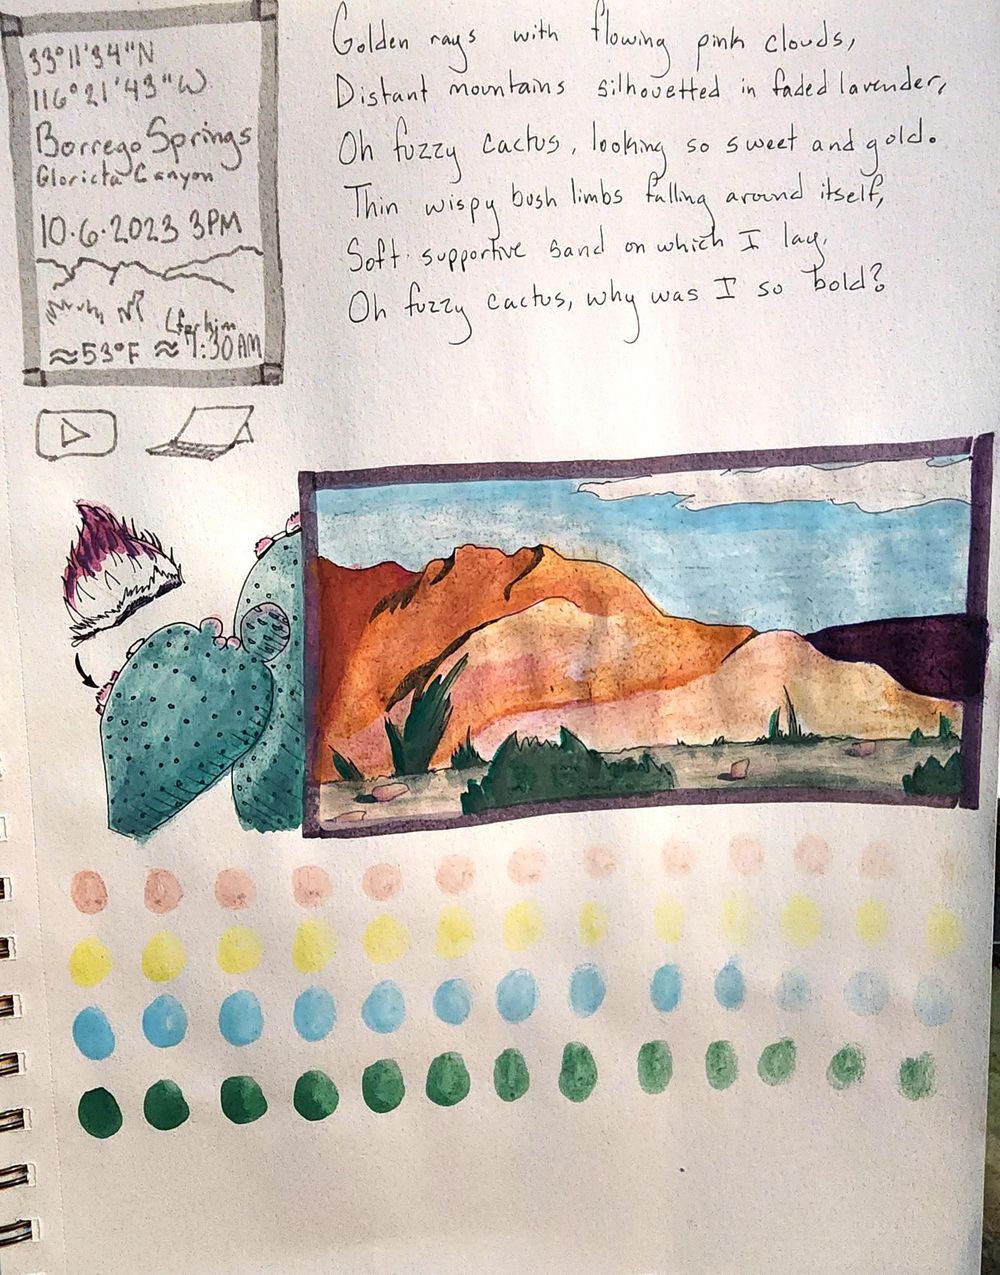 33°11'34"N
116°21'43"W
Borrego Springs
Glorieta Canyon
10.6.2023 3PM
for him
≈53°F ≈ 7:30AM
Golden rays with flowing pink clouds,
Distant mountains silhouetted in faded lavender,
Oh fuzzy cactus, looking so sweet and gold.
Thin wispy bush limbs falling around itself,
Soft supportive sand on which I lay,
Oh fuzzy cactus, why was I so bold?